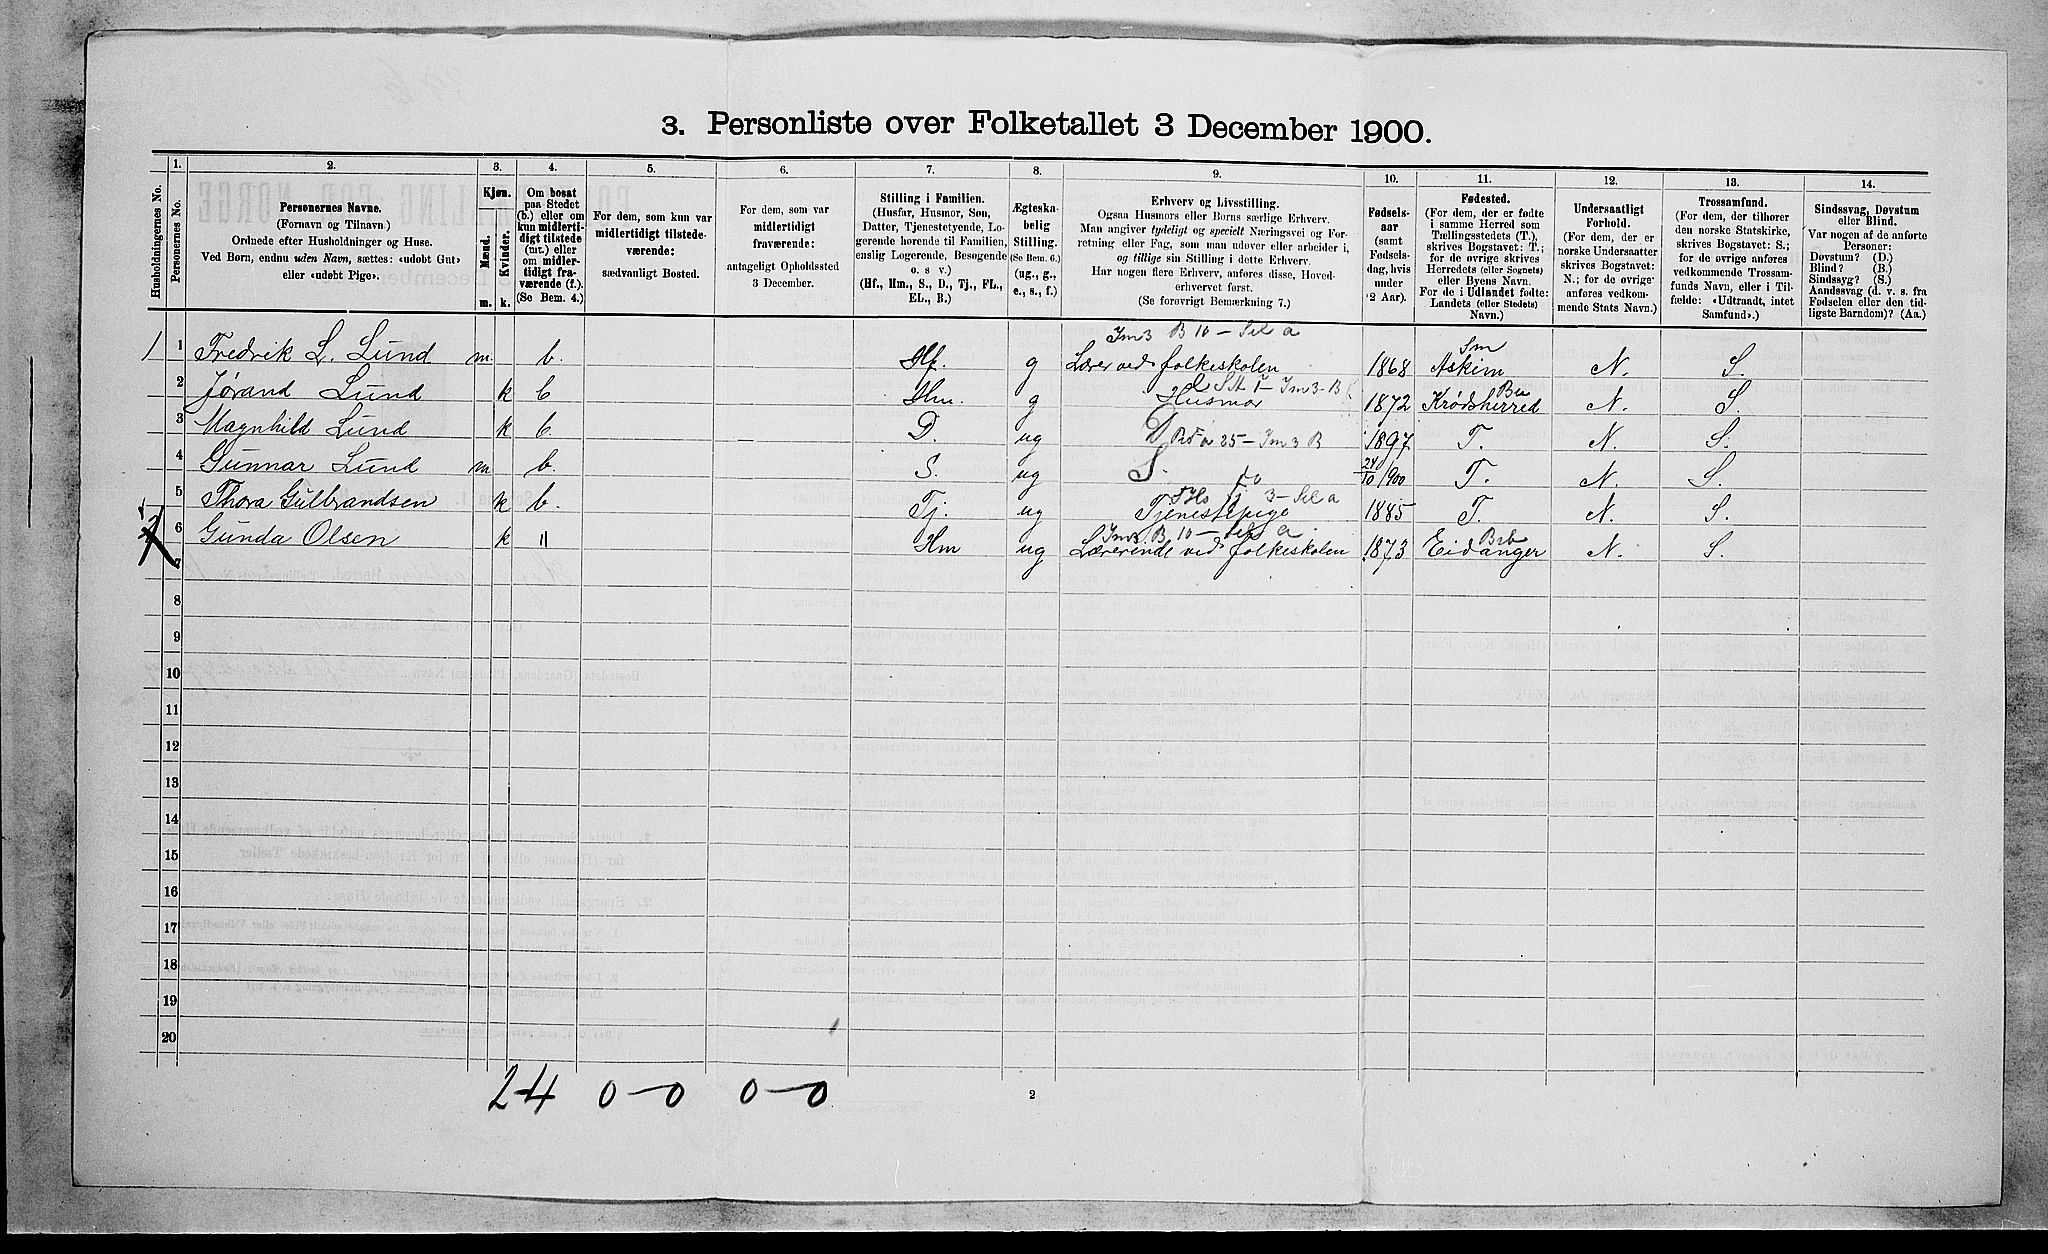 3. Personliste over Folketallet 3 December 1900.
Husholdningernes No.
1.
Personernes No.
2.
Personernes Navne.
(Fornavn og Tilnavn.)
Ordnede efter Husholdninger og Huse.
Ved Børn, endnu uden Navn, sættes: «udøbt Gut»
eller «udøbt Pige».
3.
Kjøn.
Mænd.
Kvinder.
m. k.
4.
Om bosat
paa Stedet
(b.) eller om
kun midlerti-
digt tilstede
(mt.) eller
om midler-
tidigt fra-
værende (f.).
(Se Bem. 4.)
5.
For dem, som kun var
midlertidigt tilstede-
værende:
sædvanligt Bosted.
6.
For dem, som var
midlertidigt
fraværende:
antageligt Opholdssted
3 December.
7.
Stilling i Familien.
(Husfar, Husmor, Søn,
Datter, Tjenestetyende, Lo-
gerende hørende til Familien,
enslig Logerende, Besøgende
o. s v.)
(Hf., Hm., S., D., Tj., FL.,
EL., B.)
8.
Ægteska-
belig
Stilling.
(Se Bem. 6.)
(ug., g.,
e., s., f.)
9.
Erhverv og Livsstilling.
Ogsaa Husmors eller Børns særlige Erhverv.
Man angiver tydeligt og specielt Næringsvei og For-
retning eller Fag, som man udøver eller arbeider i,
og tillige sin Stilling i dette Erhverv.
Har nogen flere Erhverv, anføres disse, Hoved-
erhvervet først.
(Se forøvrigt Bemærkning 7.)
10.
Fødsels-
aar
(samt
Fødsels-
dag, hvis
under
2 Aar).
11.
Fødested.
(For dem, der er fødte
i samme Herred som
Tællingsstedets (T.),
skrives Bogstavet: T.;
for de øvrige skrives
Herredets (eller Sognets)
eller Byens Navn.
For de i Udlandet fødte:
Landets (eller Stedets)
Navn.)
12.
Undersaatligt
Forhold.
(For dem, der er
norske Undersaatter
skrives Bogstavet:
N.; for de øvrige
anføres vedkom-
mende Stats Navn.)
13.
Trossamfund.
(For dem, der tilhører
den norske Statskirke,
skrives Bogstavet: S.;
for de øvrige anføres
vedkommende Trossam-
funds Navn, eller i Til-
fælde: «Udtraadt, intet
Samfund».)
14.
Sindssvag, Døvstum
eller Blind.
Var nogen af de anførte
Personer:
Døvstum? (D.)
Blind? (B.)
Sindssyg? (S.)
Aandssvag (d. v. s. fra
Fødselen eller den tid-
ligste Barndom)? (Aa.)
1 1 Fredrik L. Lund m. b. Hf. g Lærer ved folkeskolen 1868 Askim Sm N. S.
2 Jørand Lund k b Hm. g Husmor 1872 Krødsherred Bu N. S.
3 Magnhild Lund k b. D. ug D 1897 T. N. S.
4 Gunnar Lund m b. S. ug S. 24/10 1900 T. N. S.
5 Thora Gulbrandsen k b. Tj. ug Tjenestepige 1885 T. N. S.
2 6 Gunda Olsen k " Hm ug Lærerinde ved folkeskolen 1873 Eidanger Brb N. S.
7
8
9
10
11
12
13
14
15
16
17
18
19
20
2-4 0-0 0-0
2